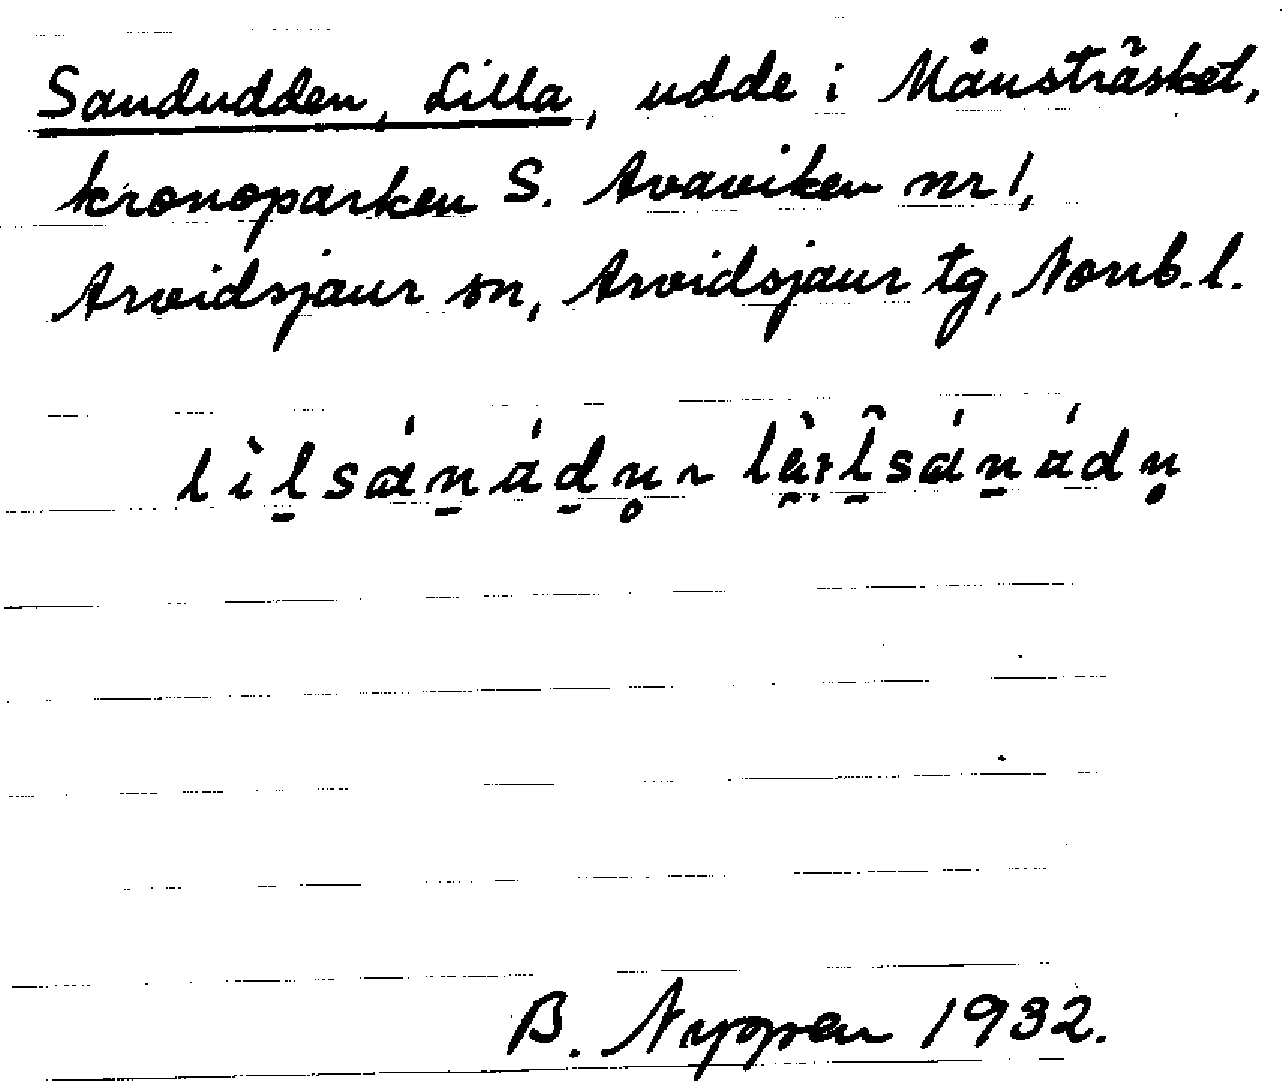 Sandudden, Lilla, udde i Månsträsket,
kronoparken S. Avaviken nr 1,
Arvidsjaur sn, Arvidsjaur tg, Norrb. l.
B. Nygren 1932.